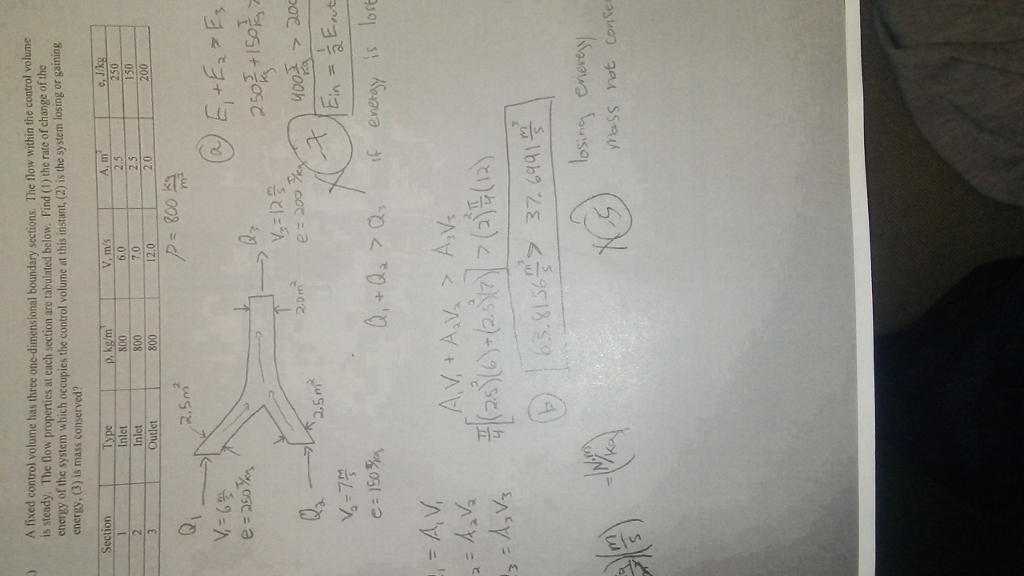 )
A fixed control volume has three one-dimensional boundary sections. The flow within the control volume
is steady. The flow properties at each section are tabulated below. Find (1) the rate of change of the
energy of the system which occupies the control volume at this instant, (2) is the system losing or gaining
energy, (3) is mass conserved?
Section Type ρ, kg/m³ V, m/s A, m² e, J/kg
1 Inlet 800 6.0 2.5 250
2 Inlet 800 7.0 2.5 150
3 Outlet 800 12.0 2.0 200
ρ = 800 kg/m³
Q₁
2.5m²
V₁ = 6 m/s
e = 250 J/kg
Q₂
2.5m²
V₂ = 7 m/s
e = 150 J/kg
Q₃
V₃ = 12 m/s
e = 200 J/kg
2.0m²
(a) E₁ + E₂ > E₃
250 J/kg + 150 J/kg >
400 J/kg > 200
Ein = ½ E
-7
Q₁ + Q₂ > Q₃ if energy is lost
₁ = A₁V₁
₂ = A₂V₂
₃ = A₃V₃
A₁V₁ + A₂V₂ > A₃V₃
π/4[(2.5²)(6) + (2.5²)(7)] > (2)² π/4 (12)
(b) 63.8136 m³/s > 37.6991 m³/s
-5
losing energy
mass not conser
(m/s) = (N m/kg)